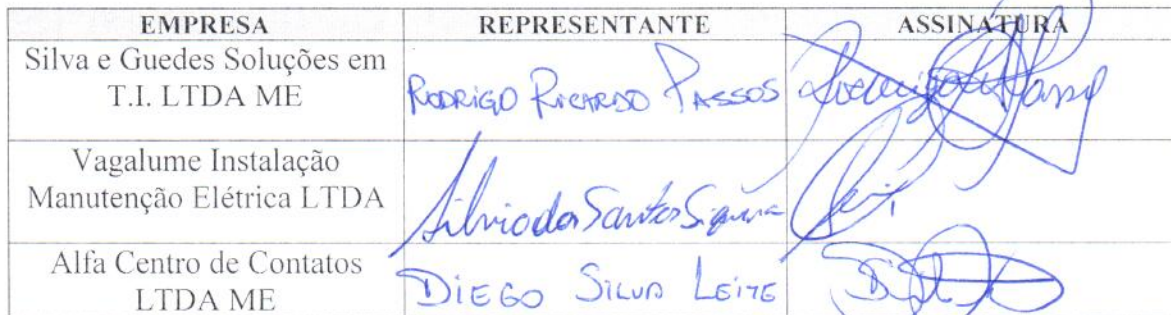 EMPRESA REPRESENTANTE ASSINATURA
Silva e Guedes Soluções em
T.I. LTDA ME
RODRIGO RICARDO PASSOS
Vagalume Instalação
Manutenção Elétrica LTDA
Silvio dos Santos Siqueira
Alfa Centro de Contatos
LTDA ME
DIEGO SILVA LEITE